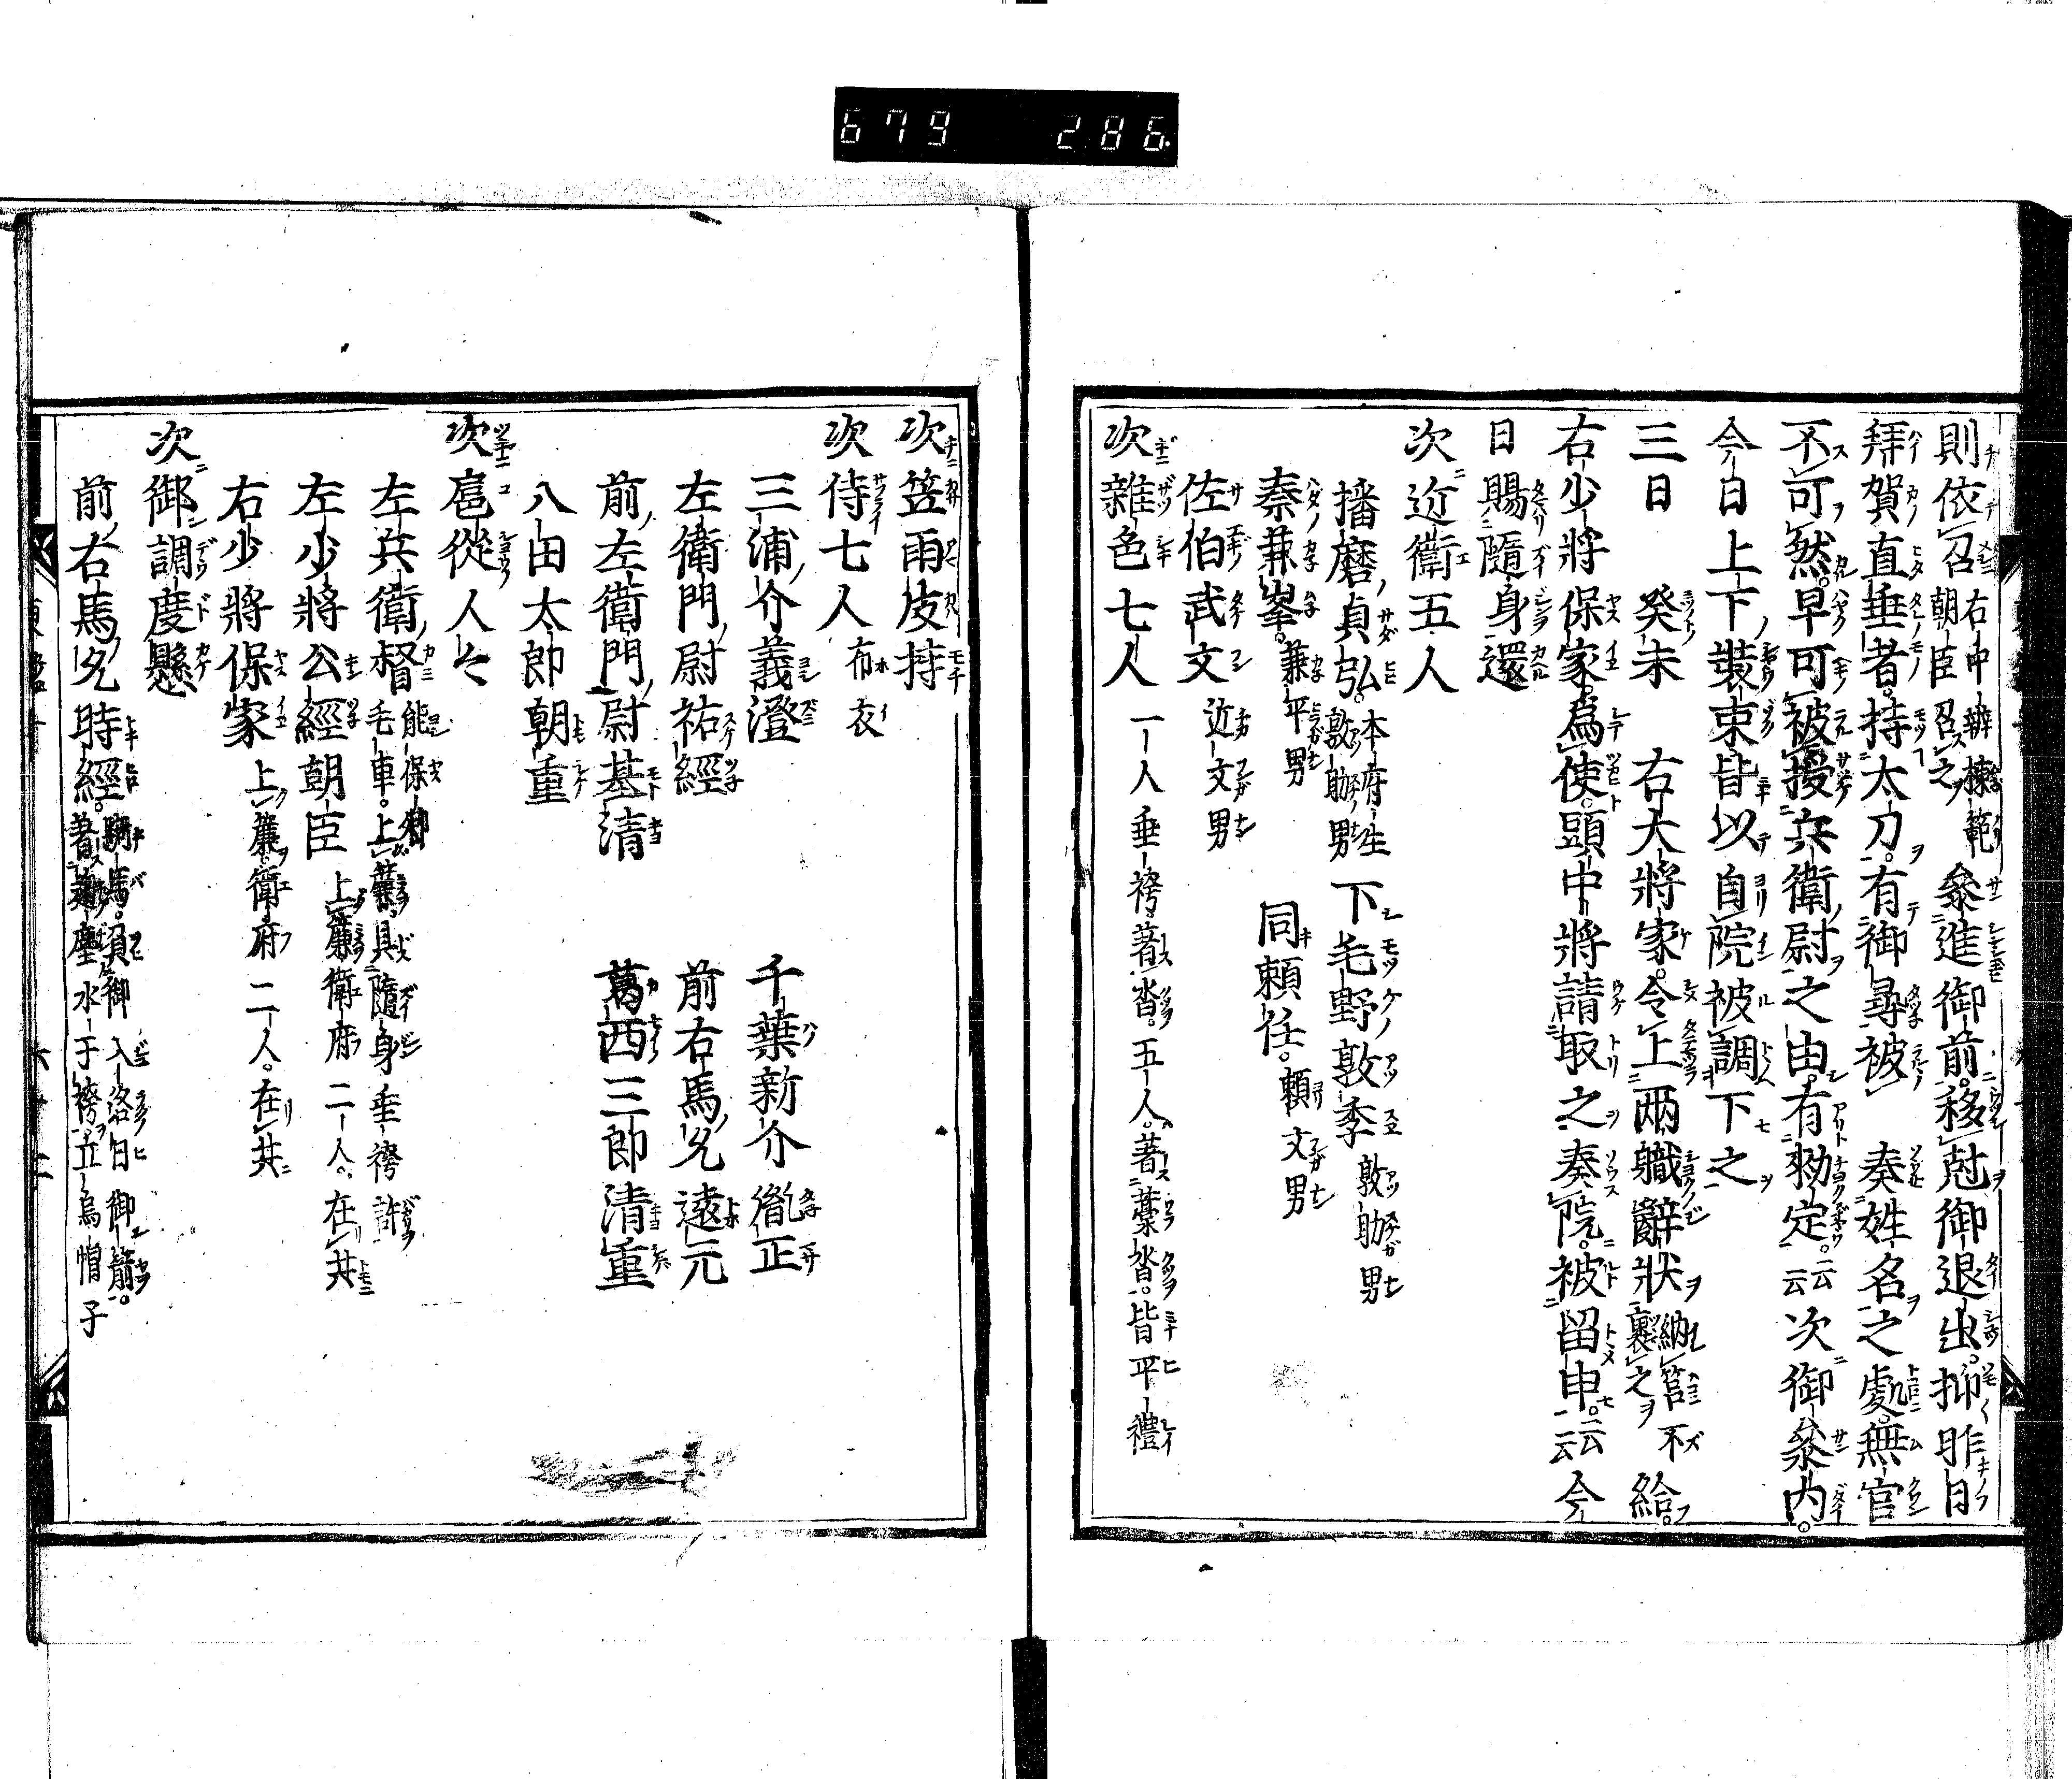 679 286
則依召 右中辨棟範朝臣召之 參進御前。移尅御退出。抑昨日
拜賀直垂者。持太刀。有御尋被 奏姓名之處。無官
不可然。早可被授兵衛尉之由。有勅定。云云次御參內。
今日上下裝束皆以自院被調下之
三日 癸未 右大將家。令上兩職辭狀 納筥不裹之 給。
右少將保家。爲使。頭中將請取之奏院。被留申。云云今
日賜隨身還
次近衛五人
播磨貞弘。本府生敦助男 下毛野敦季 敦助男
秦兼峯。兼平男 同賴任。賴文男
佐伯武文 近文男
次雜色七人 一人垂袴著沓。五人。著藁沓。皆平禮
次笠雨皮持
次侍七人 布衣
三浦介義澄 千葉新介胤正
左衛門尉祐經 前右馬允遠元
前左衛門尉基清 葛西三郎清重
八田太郎朝重
次扈從人々
左兵衛督 能保卿 毛車。上簾。具隨身垂袴
左少將公經朝臣 上簾衛府二人。在共
右少將保家 上簾衛府二人。在共
次御調度懸
前右馬允時經。騎馬。負御入洛日御箭。著麹塵水干袴。立烏帽子